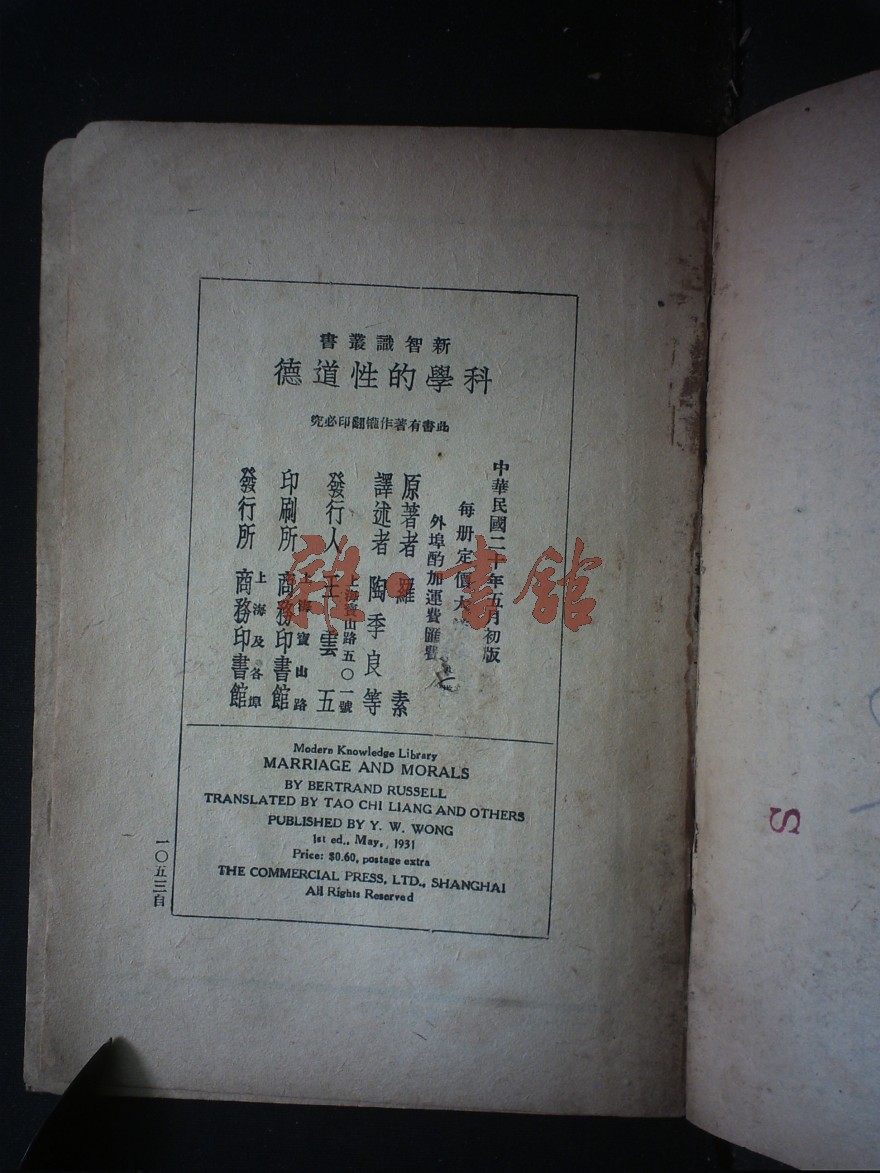 新智識叢書
科學的性道德
此書有著作權翻印必究
中華民國二十年五月初版
每册定價大
外埠酌加運費匯費
原著者 羅素
譯述者 陶季良等
發行人 王雲五
上海寶山路五〇一號
印刷所 商務印書館
上海寶山路
發行所 商務印書館
上海及各埠
Modern Knowledge Library
MARRIAGE AND MORALS
BY BERTRAND RUSSELL
TRANSLATED BY TAO CHI LIANG AND OTHERS
PUBLISHED BY Y. W. WONG
1st ed., May, 1931
Price: $0.60, postage extra
THE COMMERCIAL PRESS, LTD., SHANGHAI
All Rights Reserved
一〇五三自
雜·書館
S